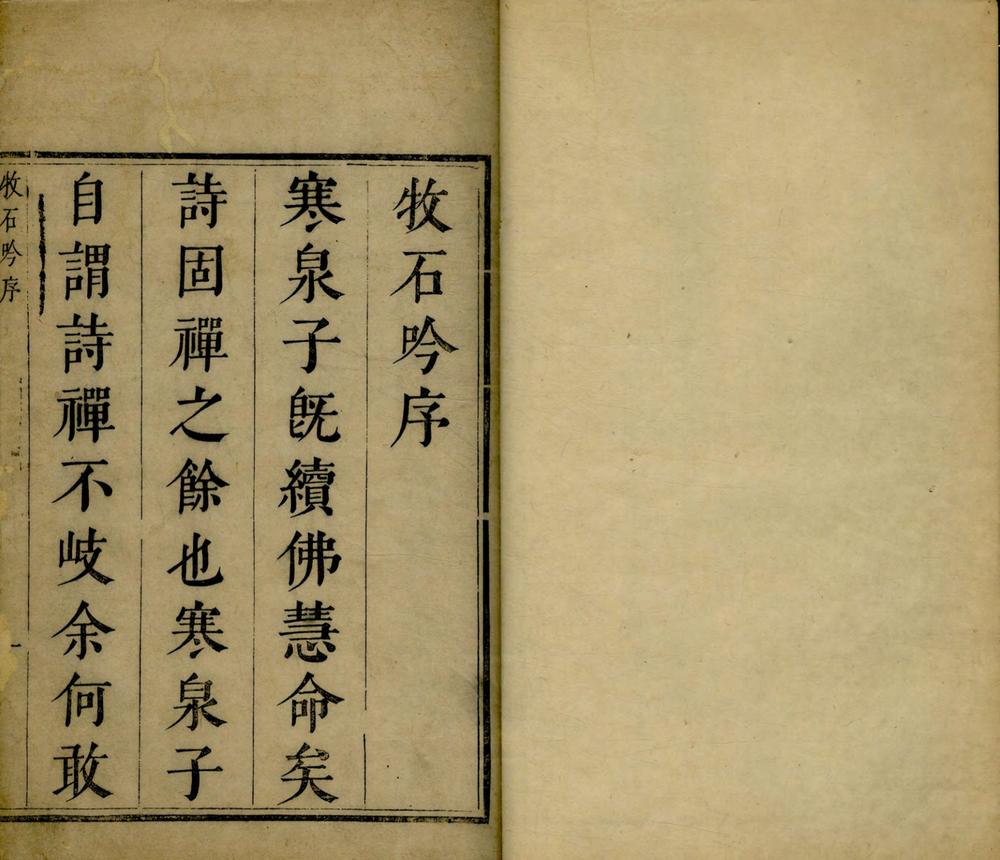 牧石吟序
寒泉子旣續佛慧命矣
詩固禪之餘也寒泉子
自謂詩禪不岐余何敢
牧石吟序
一